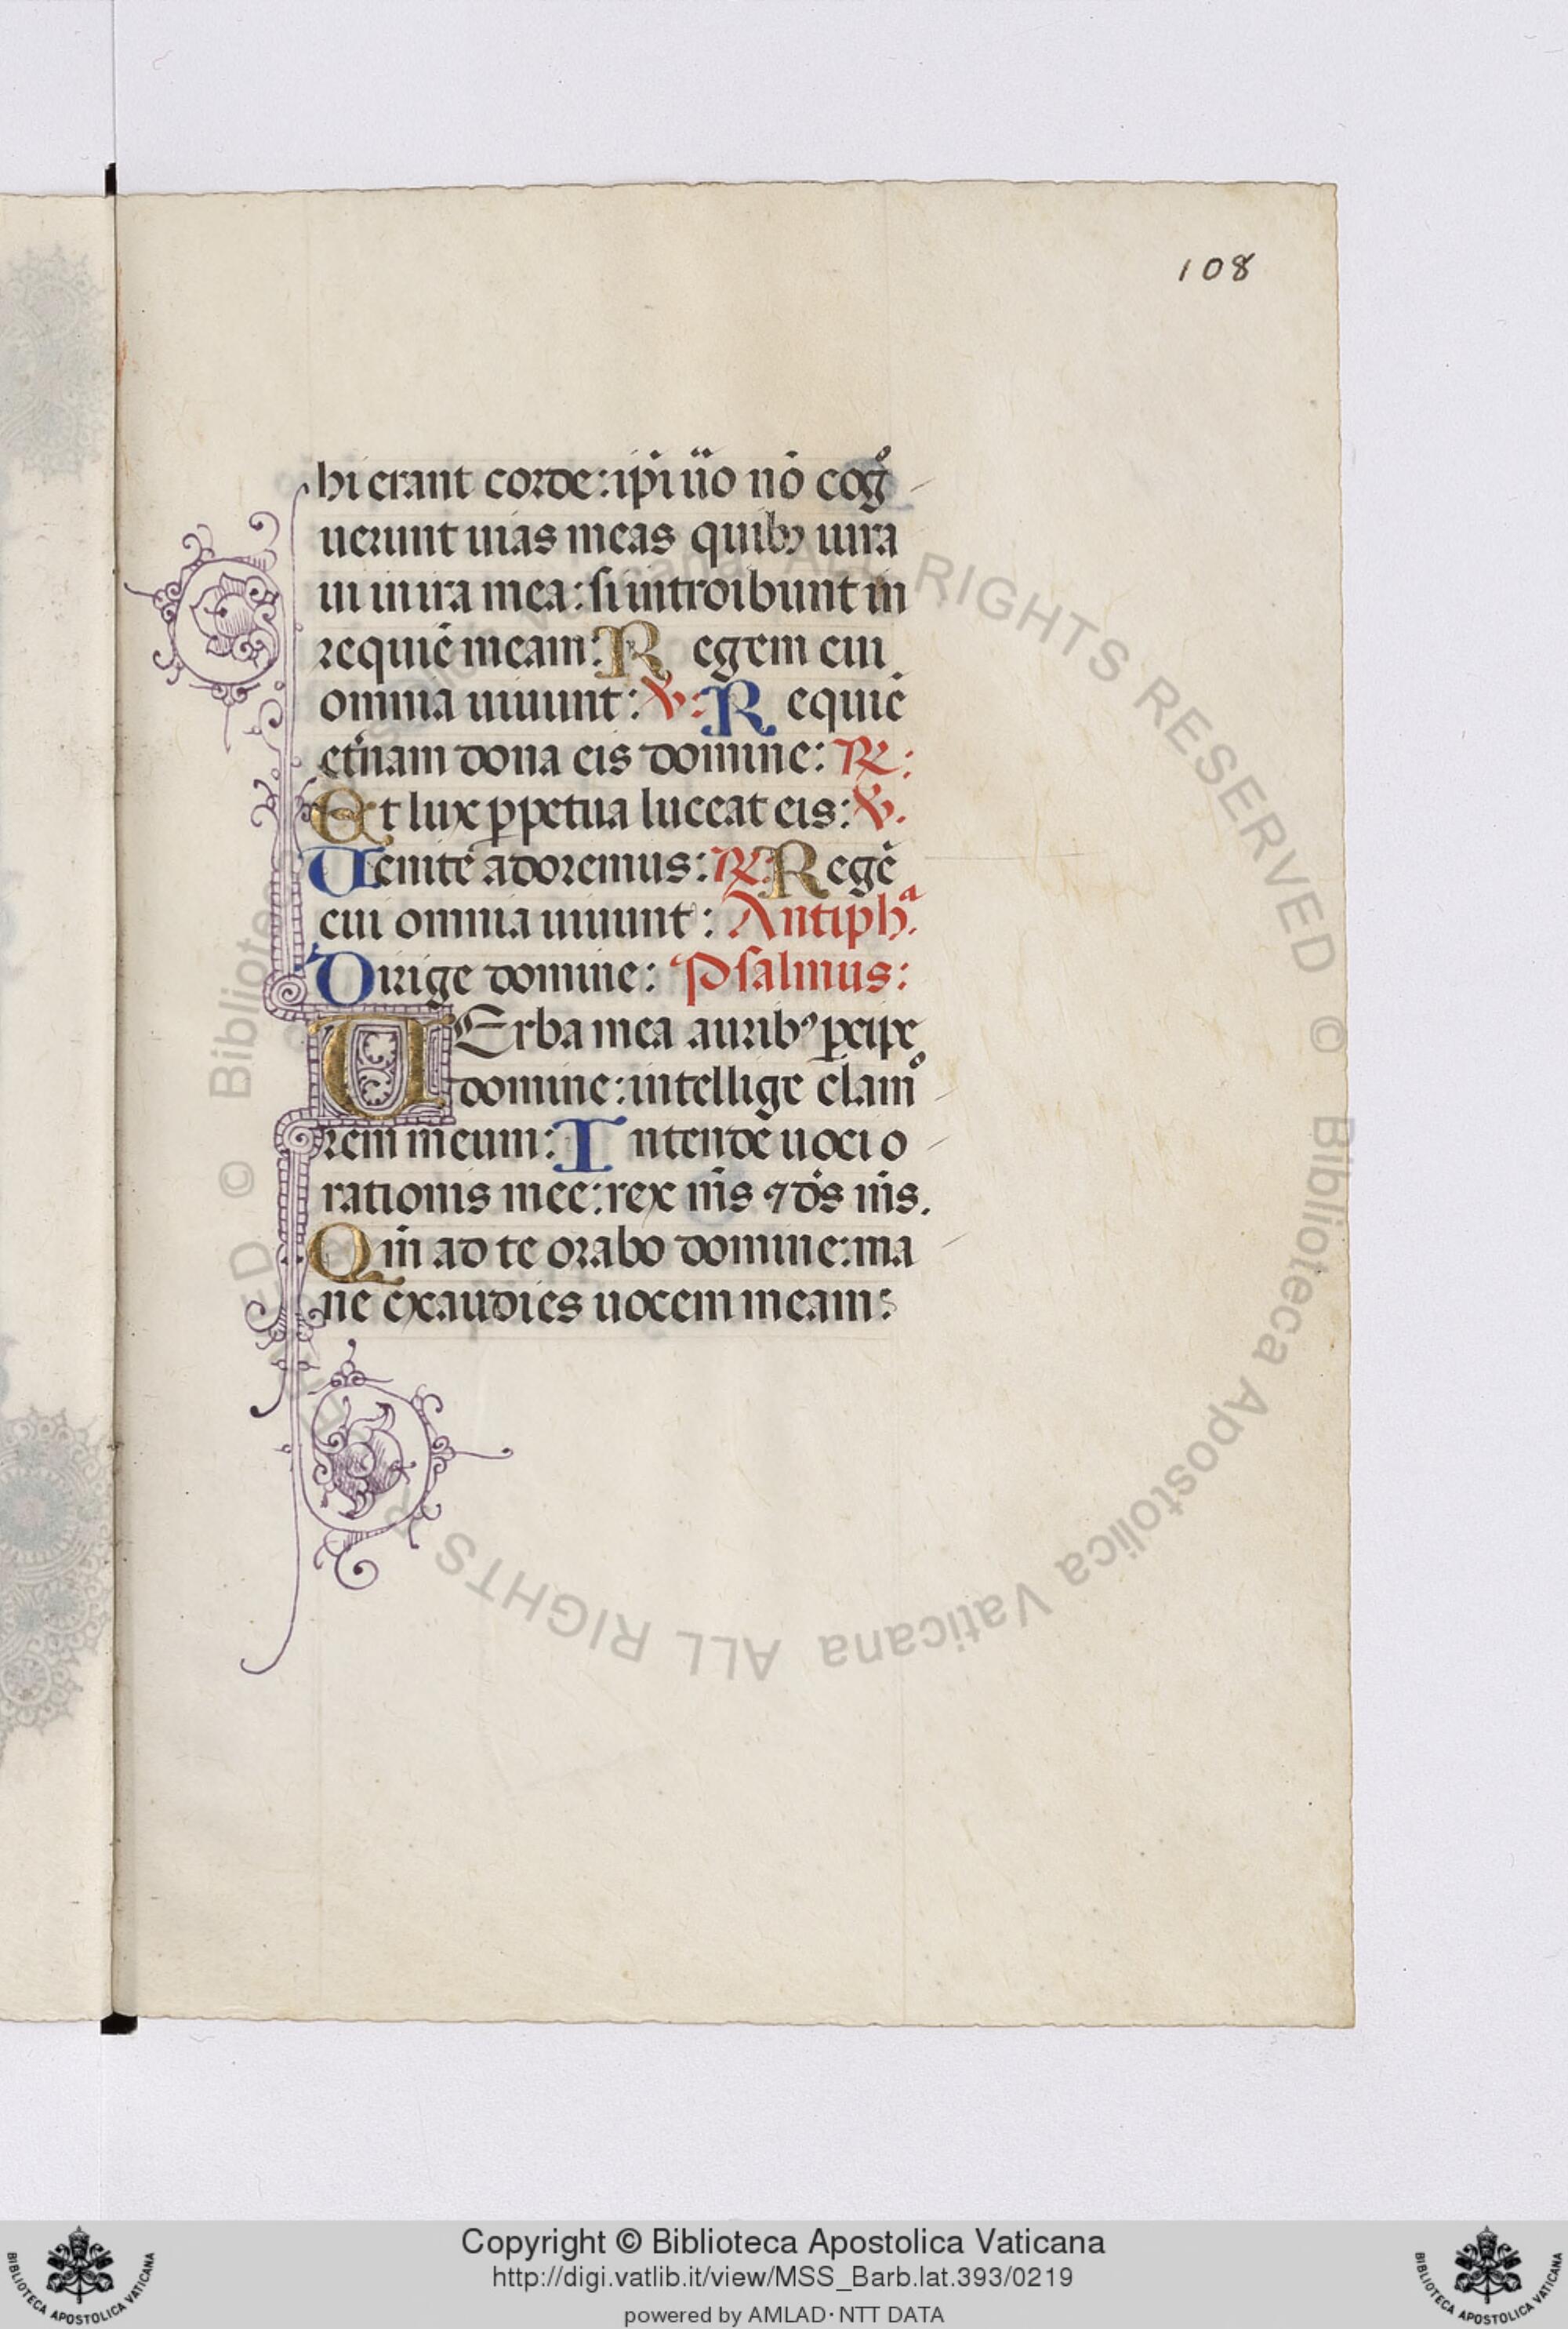 108
hi erant corde: ip̄i ūo nō cogͦ
uerunt uias meas quibꝫ iura
ui in ira mea: si introibunt in
requiē meam: Regem cui
omnia uiuunt: ℣: Requiē
et̄nam dona eis domine: ℟:
Et lux ꝑpetua luceat eis: ℣.
Uenite adoremus: ℟: Regē
cui omnia uiuunt: Antiphᵃ.
Dirige domine: Psalmus:
UErba mea auribꝰ ꝑcipe
domine: intellige clamͦ
rem meum: Intende uoci o
rationis mee: rex m̄s ⁊ ds̄ m̄s.
Qm̄ ad te orabo domine: ma
ne exaudies uocem meam:
© Biblioteca Apostolica Vaticana ALL RIGHTS RESERVED
Copyright © Biblioteca Apostolica Vaticana
http://digi.vatlib.it/view/MSS_Barb.lat.393/0219
powered by AMLAD·NTT DATA
BIBLIOTECA APOSTOLICA VATICANA
BIBLIOTECA APOSTOLICA VATICANA